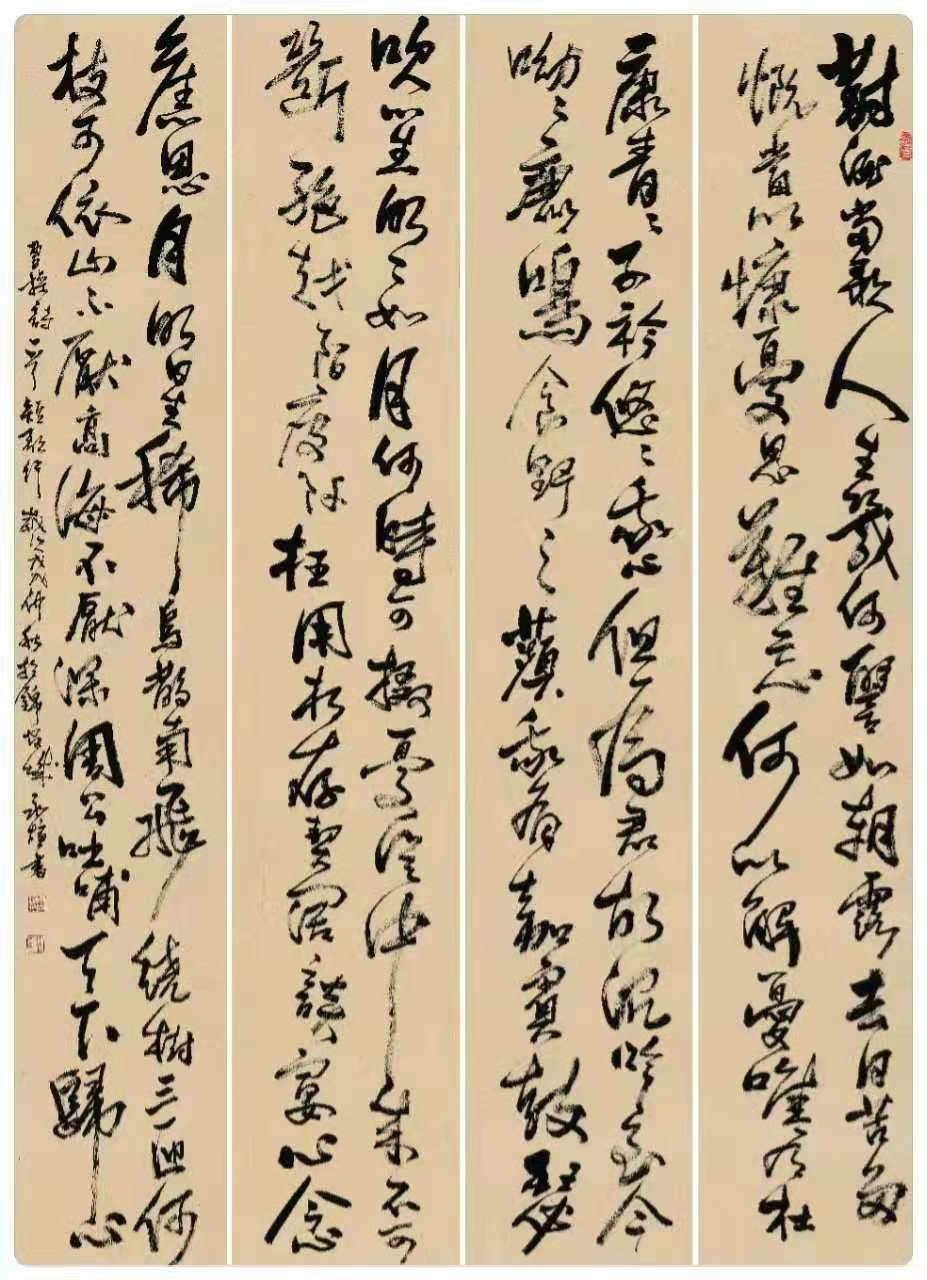 對酒當歌人生幾何譬如朝露去日苦多
慨當以慷憂思難忘何以解憂唯有杜
康青々子衿悠々我心但為君故沉吟至今
呦々鹿鳴食野之蘋我有嘉賓鼓瑟
吹笙明々如月何時可掇憂從中來不可
斷絕越陌度阡枉用相存契闊談宴心念
舊恩月明星稀烏鵲南飛繞樹三匝何
枝可依山不厭高海不厭深周公吐哺天下歸心
曹操詩一首短歌行歲次戊戌仲秋於錦城書